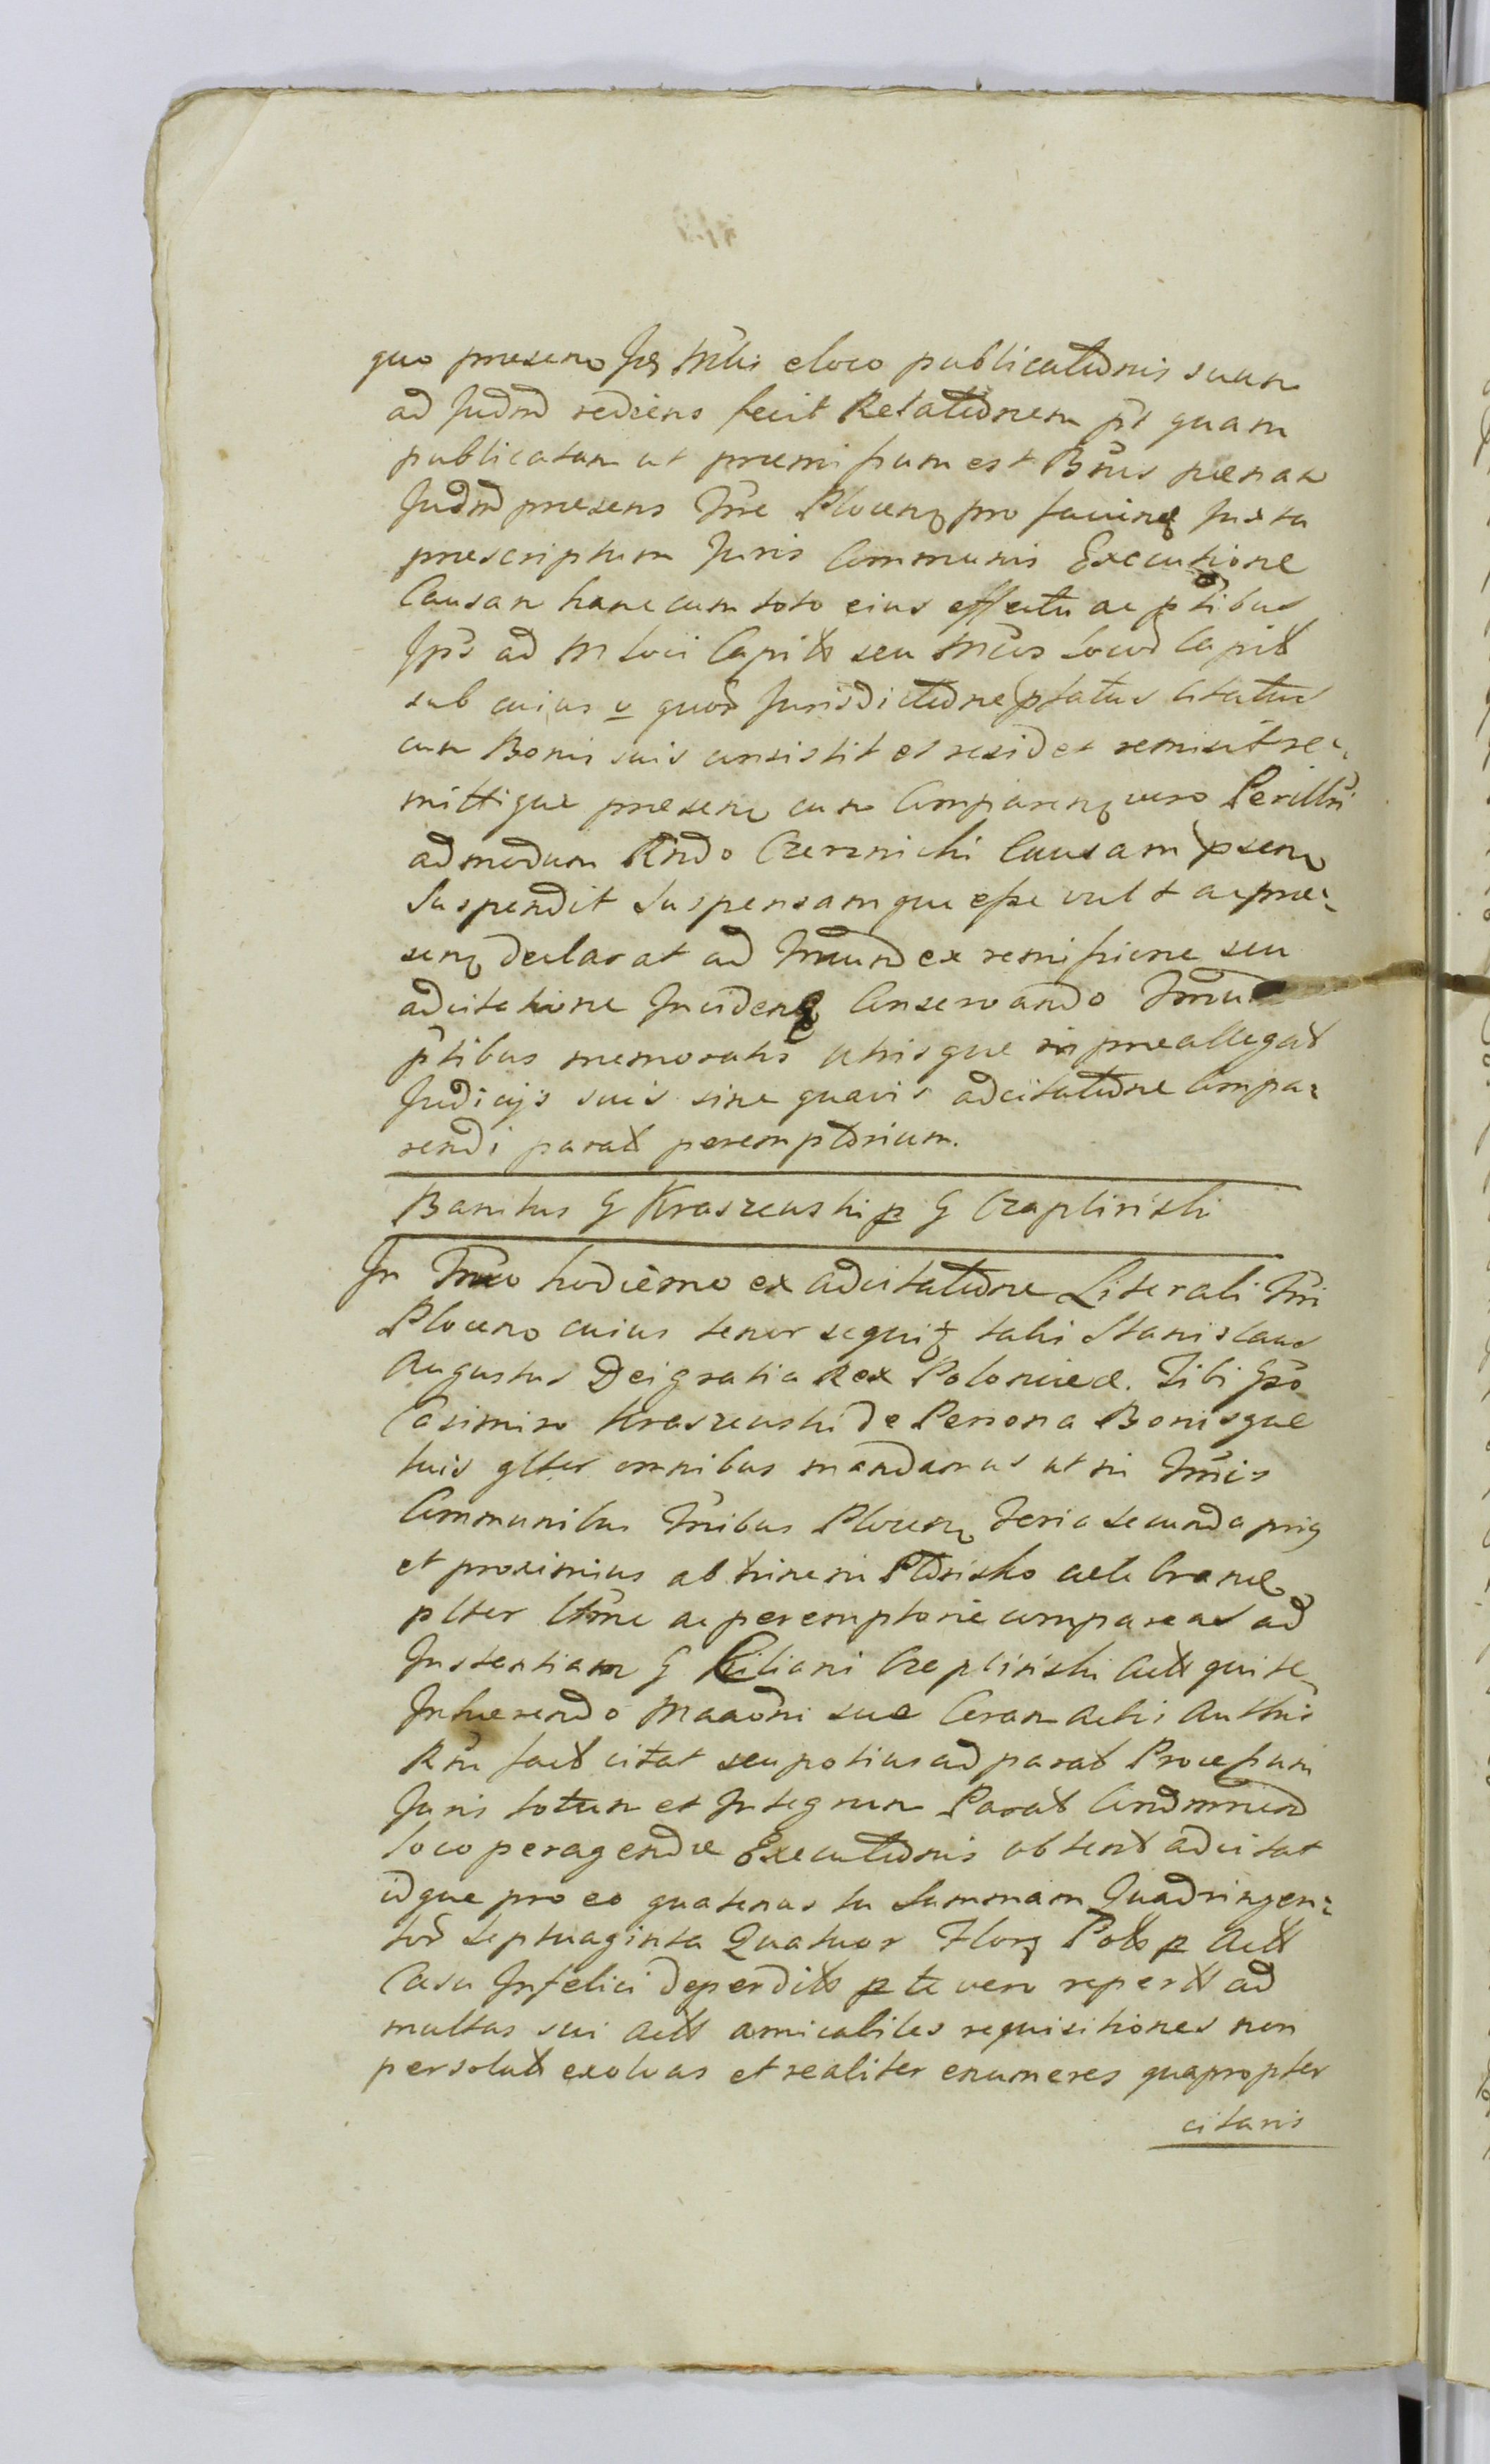 quo praesens Jus Mlis eloco publicationis suam
ad Judm rediens fecit Relationem pt quam
publicatam ut praemissum est Bnis paenae
Judm praesens Trre Plocens pro faciend Juxta
praescriptum Juris Communis Executione
Causam hanc cum toto eius effectu ac ptibus
Jpis ad M loci Capits seu Mcos locor Capit
sub cuius v quor Jurisdictione ptatus Citatus
cum Bonis suis consistit et residet remisit re-
mittique praesens cum Comparens vero Perillri
admodum Rndo Czernichi Causam psens
Suspendit Suspensamque esse vult ac prae-
sens declarat ad Tmum ex remissione seu
adcitatione Inciden Conservando Tmum
ptibus memoratis utrisque in praeallegat
Judicijs suis sine quavis adcitatione Compa-
rendi parat peremptorium.
Banitus G Kraszewski p G Czaplinski
In Tmo hodierno ex adcitatione Literali Trri
Ploceno cuius tenor sequit talis Stanislaus
Augustus Dei gratia Rex Poloniae &. Tibi Gso
Casimiro Kraszewski de Persona Bonisque
tuis glter omnibus mandamus ut in Tmis
Communibus Trribus Plocens Feria secunda
et proximius ab hinc in Plonsko celebran
plter ac peremptorie compareas ad
Instantiam G Kiliani Czaplinski Actt qui te
Inhaerendo Maaoni suae Coram Actis Authis
Rm fact citat seu potius ad parat Processum
Juris totum et Integrum Parat Condmnd
loco peragendae Executionis obtent adcitat
idque pro eo quatenus tu Summam Quadringen-
tor Septuaginta Quatuor Flors Polo p Actt
Casu Infelici deperdit p te vero repert ad
multas sui Actt amicabiles requisitiones non
persolut exolvas et realiter enumeres quapropter
citaris